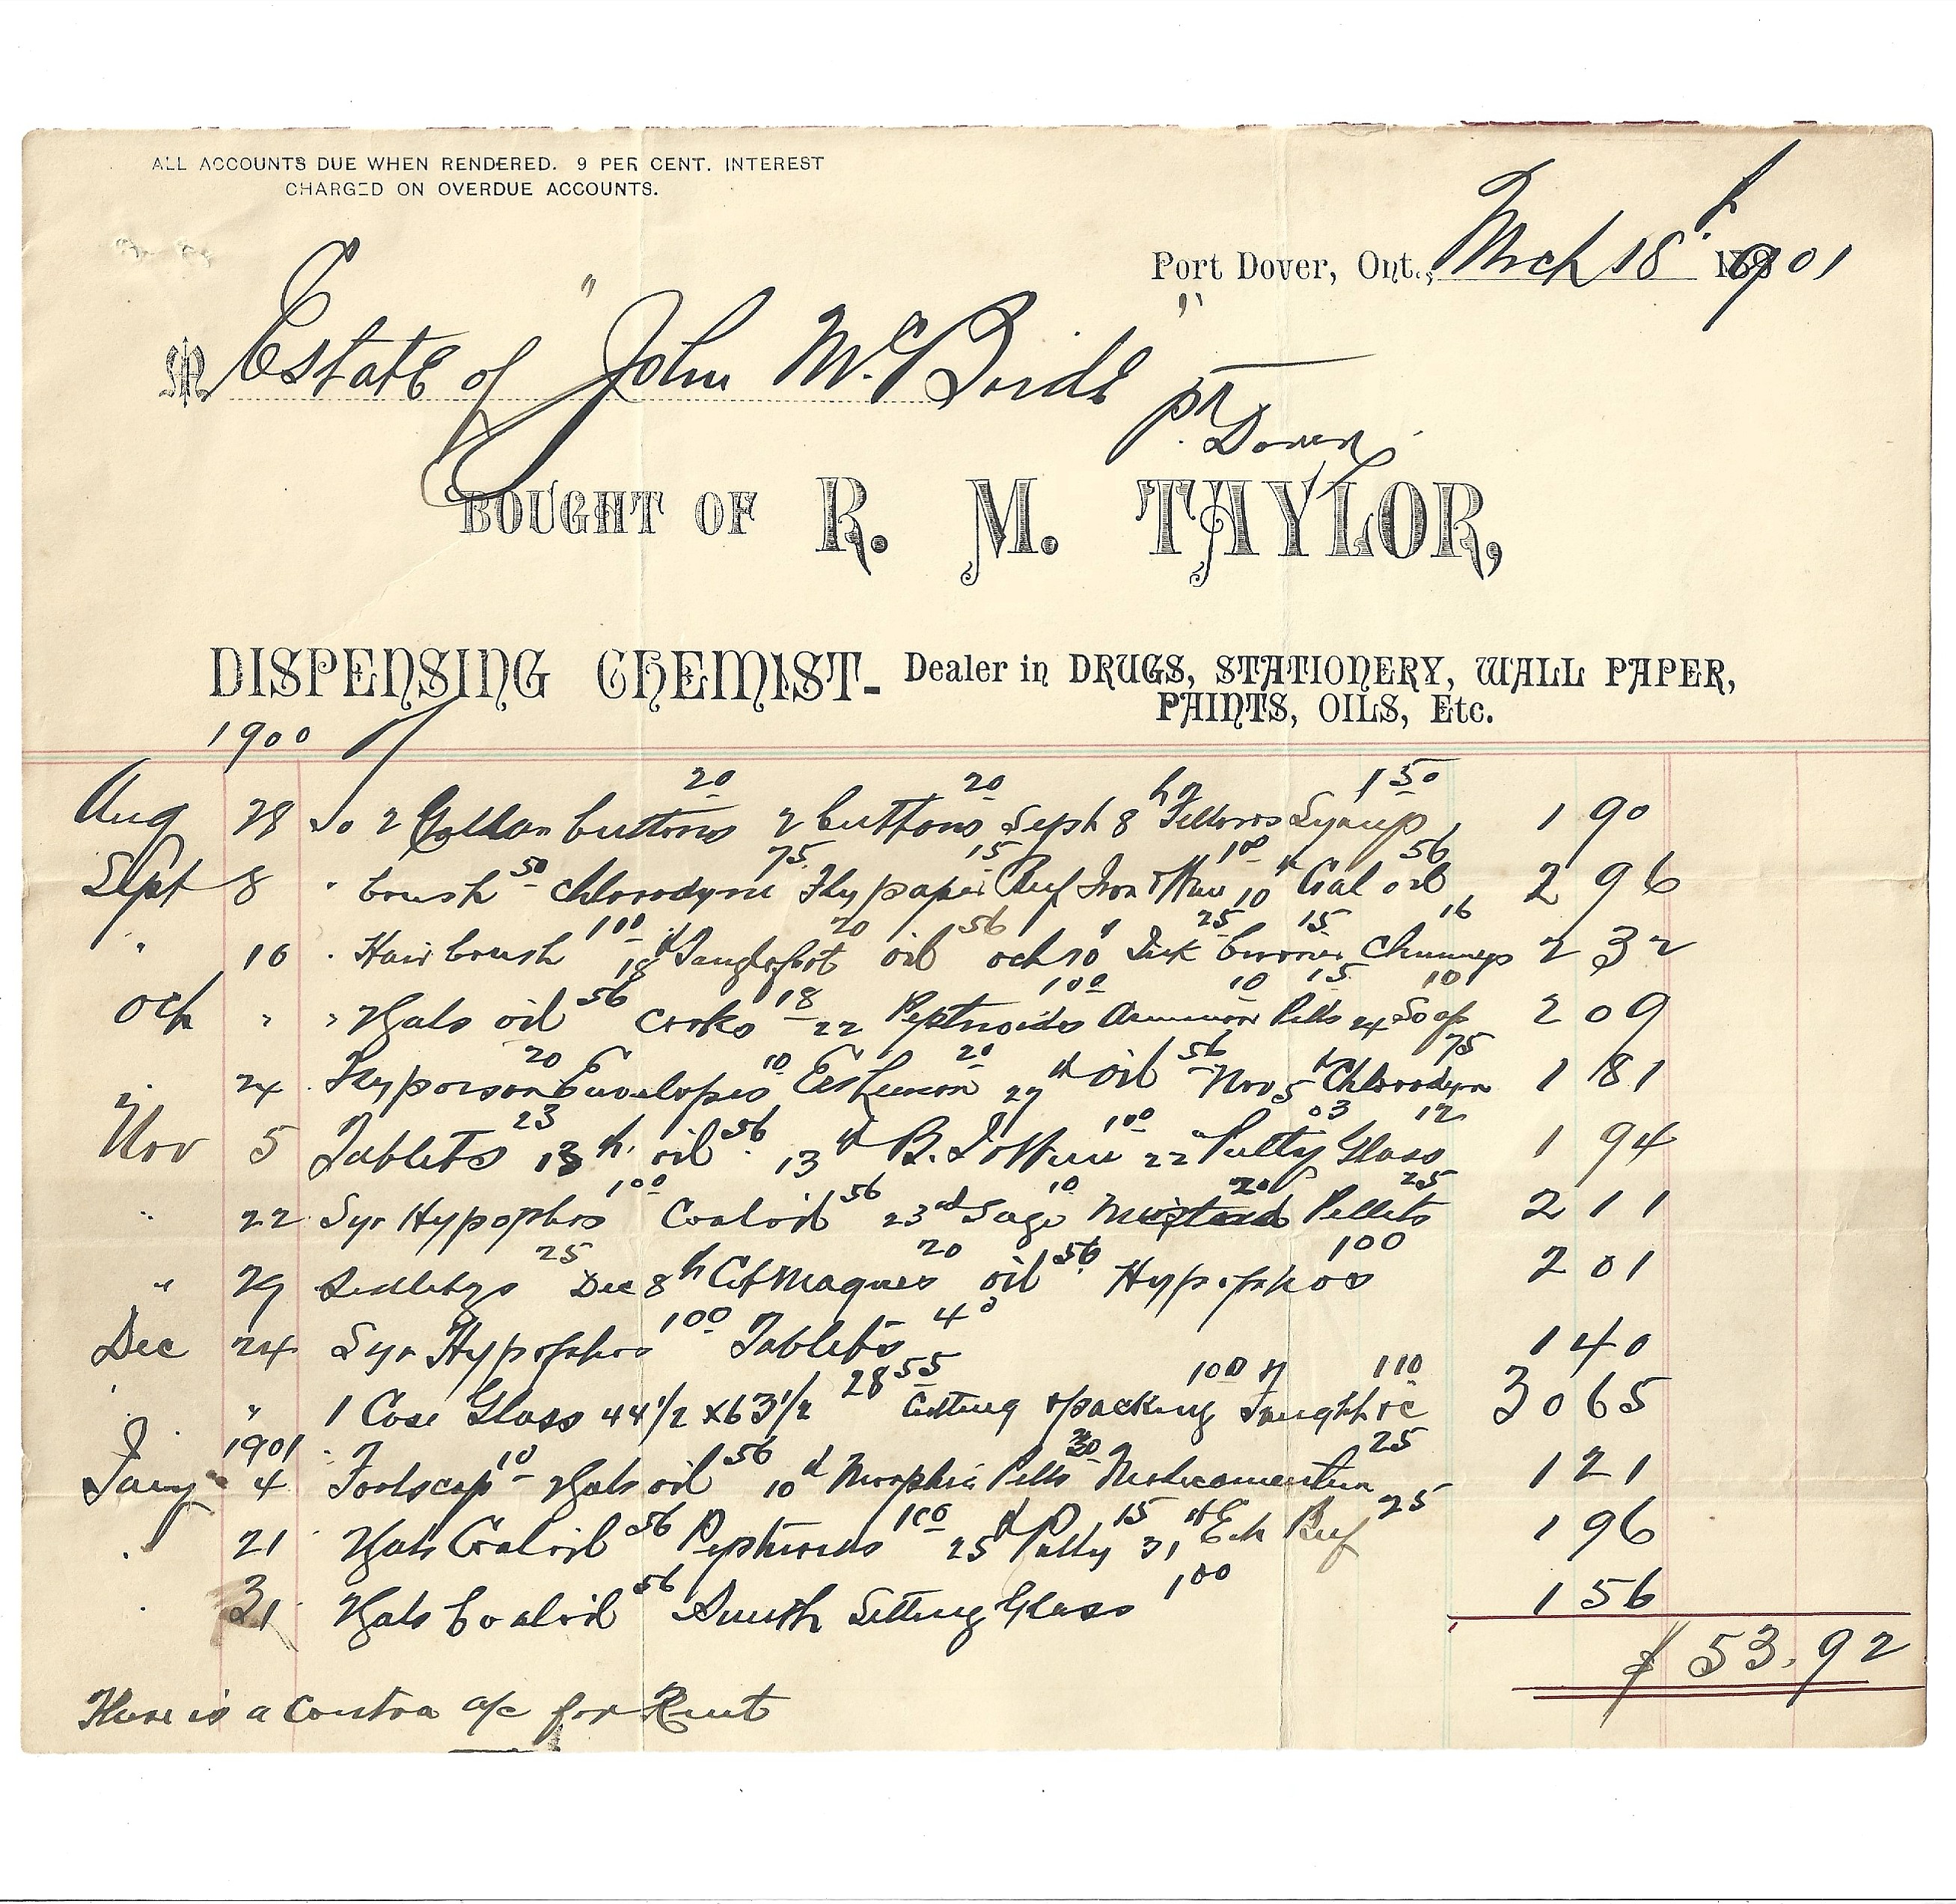 ALL ACCOUNTS DUE WHEN RENDERED. 9 PER CENT. INTEREST
CHARGED ON OVERDUE ACCOUNTS.
Port Dover, Ont., Mch 18th 1901
M Estate of "John McBride"
Pt Dover
BOUGHT OF R. M. TAYLOR,
DISPENSING CHEMIST - Dealer in DRUGS, STATIONERY, WALL PAPER,
PAINTS, OILS, Etc.
1900
Aug 28 To 2 Collar buttons 20 2 buttons 20 Sept 8th Fellows Syrup 1 50 1 90
Sept 8 " brush 50 Chlorodyne 75 Fly paper 15 Beef Iron & Wine 1 00 10th Coal oil 56 2 96
" 16 " Hair brush 1 00 18th Tanglefoot 20 oil 56 Oct 10th Wick 25 burner 15 Chimneys 16 2 32
Oct " " 2 Gals oil 56 Corks 18 22 Peptnoids 1 00 Ammonia 10 Pills 15 24 Soap 10 2 09
" 24 Fly poison 20 Envelopes 10 Ess Lemon 20 27th oil 56 Nov 5th Chlorodyne 75 1 81
Nov 5 Tablets 23 13th oil 56 13th B. I & Wine 1 00 22nd Putty 03 Glass 12 1 94
" 22 Syr Hypophos 1 00 Coal oil 56 23rd Sage 10 Mustard 20 Pellets 25 2 11
" 29 Seidletzs 25 Dec 8th Cit Magnes 20 oil 56 Hypophos 1 00 2 01
Dec 24 Syr Hypophos 1 00 Tablets 40 1 40
" " 1 Case Glass 44 1/2 x 63 1/2 28 55 Cutting & packing 1 00 Fraught &c 1 10 30 65
1901
Jany 4 Foolscap 10 2 Gals oil 56 10th Morphia Pills 30 Medicamentum 25 1 21
" 21 2 Gals Coal oil 56 Peptnoids 1 00 25th Putty 15 31st Ext Beef 25 1 96
" 31 2 Gals Coal oil 56 Smith Setting Glass 1 00 1 56
$ 53.92
There is a Contra a/c for Rent